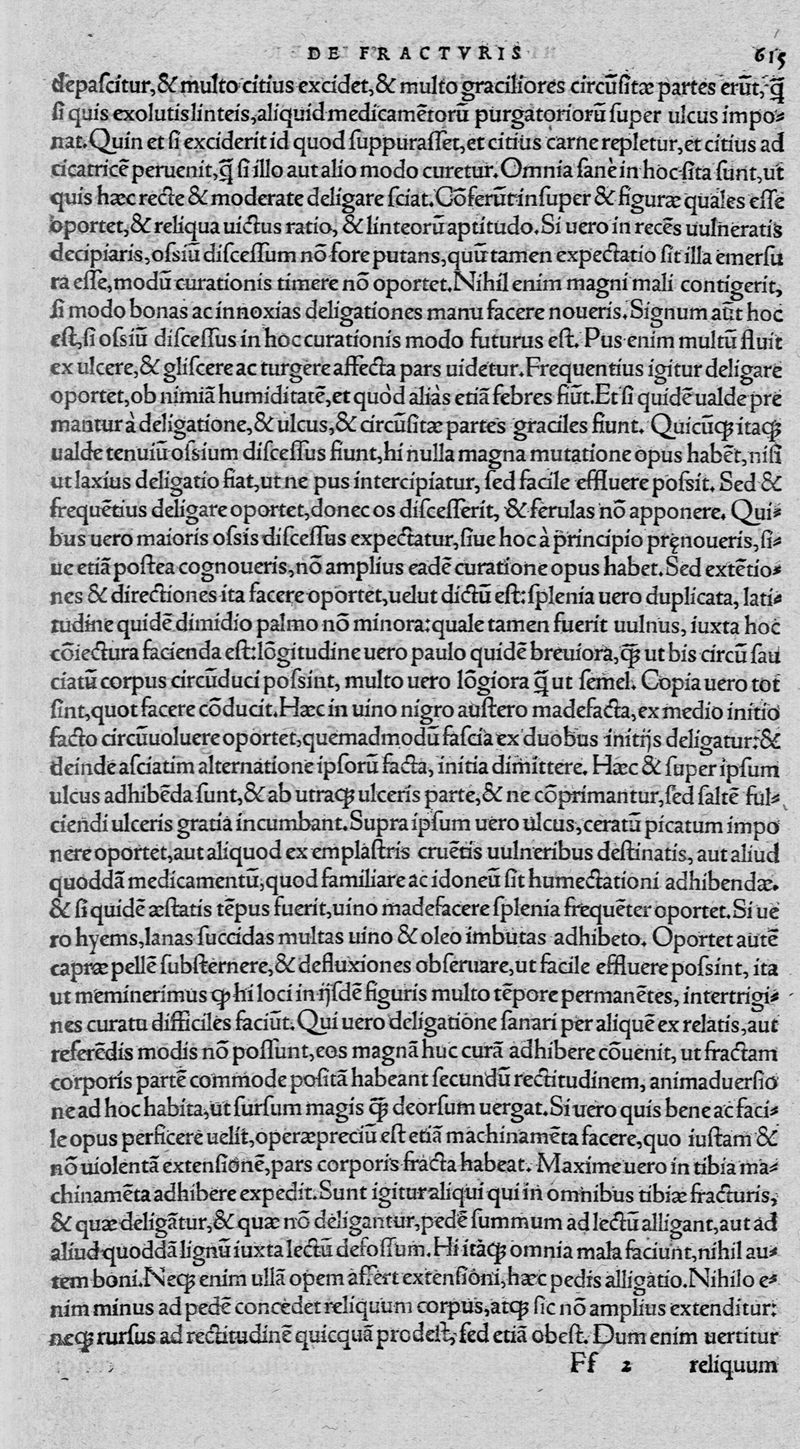 DE FRACTVRIS 615
depaſcitur,& multo citius excidet,& multo graciliores circūſitæ partes erūt, q̃
ſi quis exolutis linteis,aliquid medicamētorū purgatoriorū ſuper ulcus impo⸗
nat.Quin et ſi exciderit id quod ſuppuraſſet,et citius carne repletur,et citius ad
cicatricē peruenit,q̃ ſi illo aut alio modo curetur.Omnia ſanè in hoc ſita ſunt,ut
quis hæc recte & moderate deligare ſciat.Cōferūt inſuper & figuræ quales eſſe
oportet,& reliqua uictus ratio, & linteorū aptitudo.Si uero in recēs uulneratis
decipiaris,oſsiū diſceſſum nō fore putans,quū tamen expectatio ſit illa emerſu
ra eſſe,modū curationis timere nō oportet.Nihil enim magni mali contigerit,
ſi modo bonas ac innoxias deligationes manu facere noueris.Signum aūt hoc
eſt,ſi oſsiū diſceſſus in hoc curationis modo futurus eſt. Pus enim multū fluit
ex ulcere,& gliſcere ac turgere affecta pars uidetur.Frequentius igitur deligare
oportet,ob nimiā humiditatē,et quòd aliàs etiā febres fiūt.Et ſi quidē ualde pre
mantur à deligatione,& ulcus,& circūſitæ partes graciles fiunt. Quicūq; itaq;
ualde tenuiū oſsium diſceſſus fiunt,hi nulla magna mutatione opus habēt,niſi
ut laxius deligatio fiat,ut ne pus intercipiatur, ſed facile effluere poſsit. Sed &
frequētius deligare oportet,donec os diſceſſerit, & ferulas nō apponere. Qui⸗
bus uero maioris oſsis diſceſſus expectatur,ſiue hoc à principio pręnoueris,ſi⸗
ue etiā poſtea cognoueris,nō amplius eadē curatione opus habet.Sed extētio⸗
nes & directiones ita facere oportet,uelut dictū eſt:ſplenia uero duplicata, lati⸗
tudine quidē dimidio palmo nō minora:quale tamen fuerit uulnus, iuxta hoc
cōiectura facienda eſt:lōgitudine uero paulo quidē breuiora,q̃; ut bis circū ſau
ciatū corpus circūduci poſsint, multo uero lōgiora q̃ ut ſemel. Copia uero tot
ſint,quot facere cōducit.Hæc in uino nigro auſtero madefacta,ex medio initio
facto circūuoluere oportet,quemadmodū faſcia ex duobus initijs deligatur:&
deinde aſciatim alternatione ipſorū facta, initia dimittere. Hæc & ſuper ipſum
ulcus adhibēda ſunt,& ab utraq; ulceris parte,& ne cōprimantur,ſed ſaltē ful⸗
ciendi ulceris gratia incumbant.Supra ipſum uero ulcus,ceratū picatum impo
nere oportet,aut aliquod ex emplaſtris cruētis uulneribus deſtinatis, aut aliud
quoddā medicamentū,quod familiare ac idoneū ſit humectationi adhibendæ.
& ſi quidē æſtatis tēpus fuerit,uino madefacere ſplenia frequēter oportet.Si ue
ro hyems,lanas ſuccidas multas uino & oleo imbutas adhibeto. Oportet autē
capræ pellē ſubſternere,& defluxiones obſeruare,ut facile effluere poſsint, ita
ut meminerimus q; hi loci in ijſdē figuris multo tēpore permanētes, intertrigi⸗
nes curatu difficiles faciūt.Qui uero deligatione ſanari per aliquē ex relatis,aut
referēdis modis nō poſſunt,eos magnā huc curā adhibere cōuenit, ut fractam
corporis partē commode poſitā habeant ſecundū rectitudinem, animaduerſio
ne ad hoc habita,ut ſurſum magis q̃; deorſum uergat.Si uero quis bene ac faci⸗
le opus perficere uelit,operæpreciū eſt etiā machinamēta facere,quo iuſtam &
nō uiolentā extenſionē,pars corporis fracta habeat. Maxime uero in tibia ma⸗
chinamēta adhibere expedit.Sunt igitur aliqui qui in omnibus tibiæ fracturis,
& quæ deligātur,& quæ nō deligantur,pedē ſummum ad lectū alligant,aut ad
aliud quoddā lignū iuxta lectū defoſſum.Hi itaq; omnia mala faciunt,nihil au⸗
tem boni.Neq; enim ullā opem affert extenſioni,hæc pedis alligatio.Nihilo e⸗
nim minus ad pedē concedet reliquum corpus,atq; ſic nō amplius extenditur:
neq; rurſus ad rectitudinē quicquā prodeſt, ſed etiā obeſt. Dum enim uertitur
Ff 2 reliquum